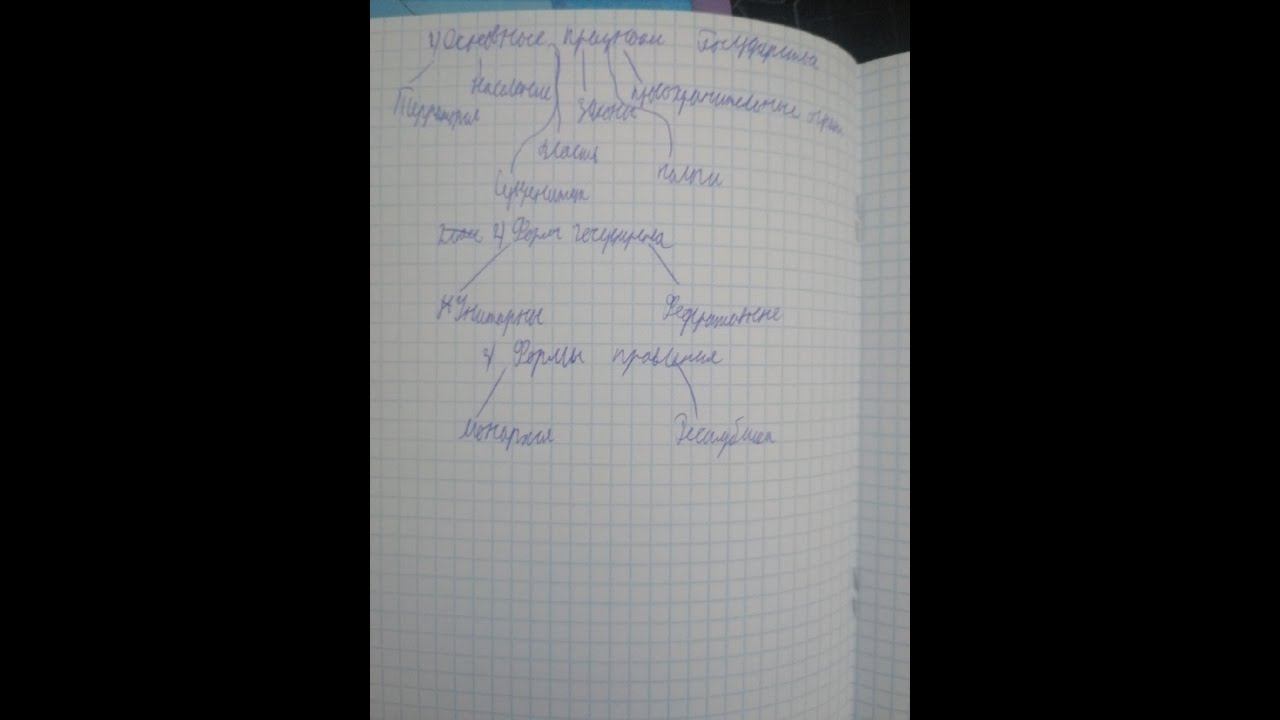 1) Основные признаки Государства
Население Законы правоохранительные органы
Территория
Власть
Суверенитет налоги
2) Формы государства
Унитарны Федеративные
3) Формы правления
Монархия Республика